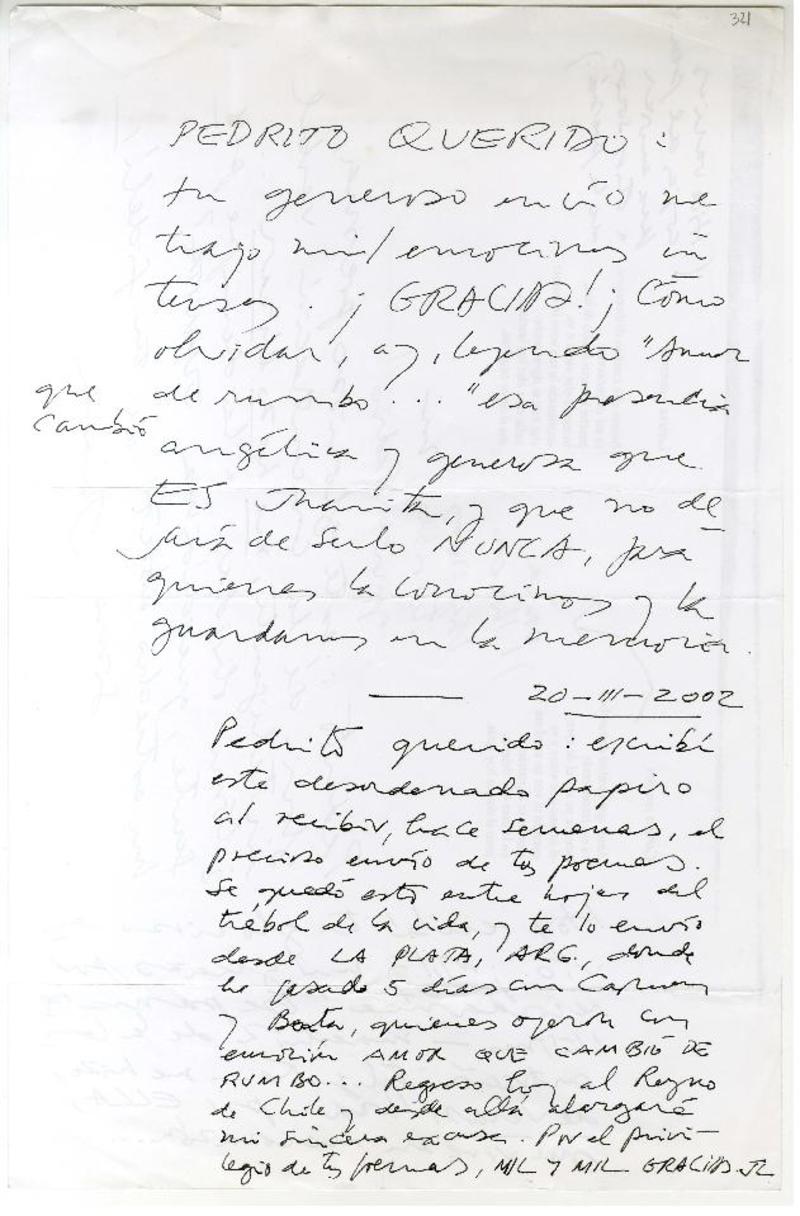 321
PEDRITO QUERIDO:
tu generoso envío me
trajo mil emociones in
tensas. ¡GRACIAS! ¡Cómo
olvidar, ay, leyendo "Amor
que cambió de rumbo..." esa presencia
angélica y generosa que
ES Juanita, y que no de
jará de serlo NUNCA, para
quienes la conocimos y la
guardamos en la memoria.
20-III-2002
Pedrito querido: escribí
este desordenado papiro
al recibir, hace semanas, el
precioso envío de tus poemas.
Se quedó esto entre hojas del
trébol de la vida, y te lo envío
desde LA PLATA, ARG., donde
he pasado 5 días con Carmen
y Berta, quienes oyeron con
emoción AMOR QUE CAMBIÓ DE
RUMBO... Regreso hoy al Reyno
de Chile y desde allá alargaré
mi sincera excusa. Por el privi-
legio de tus poemas, MIL Y MIL GRACIAS.